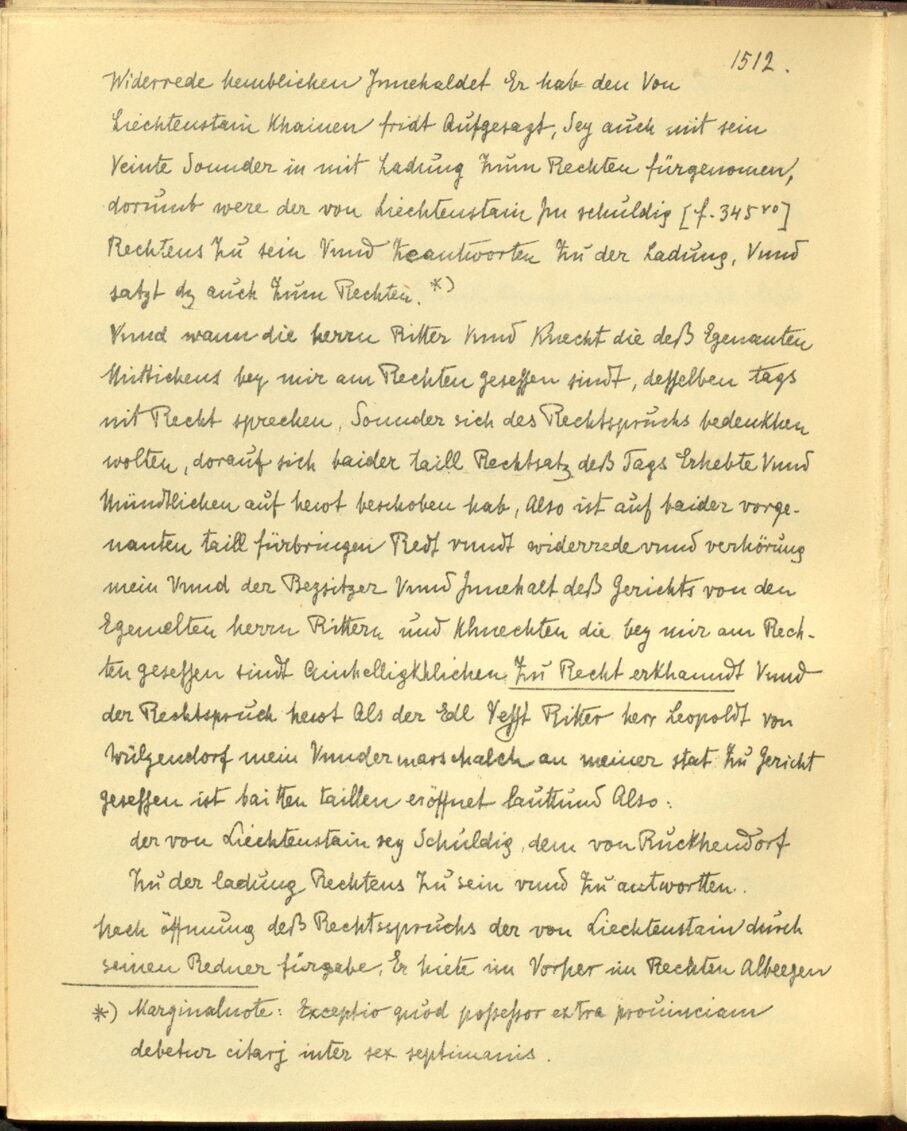 1512.
Widerrede hemblichen Innehaldet Er hab den Von
Liechtenstain Khainen fridt Aufgesagt, Sey auch mit sein
Veinte Sonnder in mit Ladung Zum Rechten fürgenomen,
dorumb were der von Liechtenstain Im schuldig [f. 345vo]
Rechtens Zu sein Vnnd Zeantworten Zu der Ladung, Vnnd
satzt dz auch Zum Rechten. *)
Vnnd wann die herrn Ritter Vnnd Knecht die deß Egenanten
Mittichens bey mir am Rechten gesessen sindt, desselben tags
nit Recht sprechen, Sonnder sich des Rechtspruchs bedenkhen
wolten, dorauf sich baider taill Rechtsatz deß Tags Erhebte Vnnd
Mündtlichen auf hewt beschoben hab, Also ist auf baider vorge-
nanten taill fürbringen Redt vnndt widerrede vnnd verhörung
mein Vnnd der Beysitzer Vnnd Innehalt deß Gerichts von den
Egemelten herrn Rittern und Khnechten die bey mir am Rech-
ten gesessen sindt Ainhelligkhlichen Zu Recht erkhanndt Vnnd
der Rechtspruch hewt Als der Edl Vesst Ritter herr Leopoldt von
Wulzendorf mein Vnndermarschalch an meiner stat Zu Gericht
gesessen ist baitten taillen eröffnet lauttund Also:
der von Liechtenstain sey Schuldig, dem von Ruckhendorf
Zu der ladung Rechtens Zu sein vnnd Zu antwortten.
Nach öffnung deß Rechtsspruchs der von Liechtenstain durch
seinen Redner fürgabe, Er hiete im Vorher im Rechten Albeegen
*) Marginalnote: Exceptio quod possessor extra prouinciam
debetur citarj inter sex septimanis.